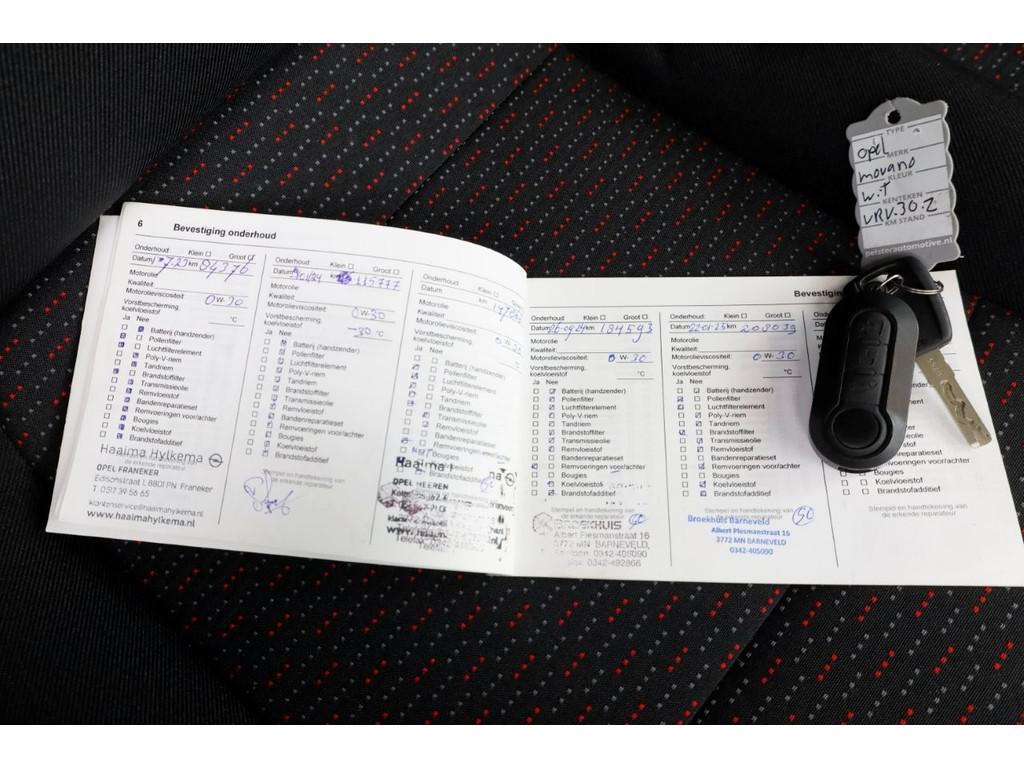 6
Bevestiging onderhoud
Onderhoud: Klein Groot
Datum 7.23 km 94376
Motorolie
Kwaliteit:
Motorolieviscositeit: 0 W- 30
Vorstbescherming, koelvloeistof °C
Ja Nee
Batterij (handzender)
Pollenfilter
Luchtfilterelement
Poly-V-riem
Tandriem
Brandstoffilter
Transmissieolie
Remvloeistof
Bandenreparatieset
Remvoeringen voor/achter
Bougies
Koelvloeistof
Brandstofadditief
Haaima Hylkema
de erkende reparateur
OPEL FRANEKER
Edisonstraat 1, 8801 PN Franeker
T. 0517 39 56 65
klantenservice@haaimahylkema.nl
www.haaimahylkema.nl
Onderhoud: Klein Groot
Datum km 115777
Motorolie
Kwaliteit:
Motorolieviscositeit: 0 W- 30
Vorstbescherming, koelvloeistof -30 °C
Ja Nee
Batterij (handzender)
Pollenfilter
Luchtfilterelement
Poly-V-riem
Tandriem
Brandstoffilter
Transmissieolie
Remvloeistof
Bandenreparatieset
Remvoeringen voor/achter
Bougies
Koelvloeistof
Brandstofadditief
Stempel en handtekening van
de erkende reparateur
Onderhoud: Klein Groot
Datum km
Motorolie
Kwaliteit:
Motorolieviscositeit:
Vorstbescherming, koelvloeistof
Ja Nee
Batterij (handzender)
Pollenfilter
Luchtfilterelement
Poly-V-riem
Tandriem
Brandstoffilter
Transmissieolie
Remvloeistof
Bandenreparatieset
Remvoeringen voor/achter
Bougies
Koelvloeistof
Brandstofadditief
Haaima
Onderhoud: Klein Groot
Datum 26-09-24 km 184593
Motorolie
Kwaliteit:
Motorolieviscositeit: 0 W- 30
Vorstbescherming, koelvloeistof °C
Ja Nee
Batterij (handzender)
Pollenfilter
Luchtfilterelement
Poly-V-riem
Tandriem
Brandstoffilter
Transmissieolie
Remvloeistof
Bandenreparatieset
Remvoeringen voor/achter
Bougies
Koelvloeistof
Brandstofadditief
BROEKHUIS
Albert Plesmanstraat 16
3772 MN BARNEVELD,
Telefoon: 0342-405090
Fax: 0342-492866
Onderhoud: Klein Groot
Datum 22-01-25 km 203039
Motorolie
Kwaliteit:
Motorolieviscositeit: 0 W- 30
Vorstbescherming, koelvloeistof °C
Ja Nee
Batterij (handzender)
Pollenfilter
Luchtfilterelement
Poly-V-riem
Tandriem
Brandstoffilter
Transmissieolie
Remvloeistof
Bandenreparatieset
Remvoeringen voor/achter
Bougies
Koelvloeistof
Brandstofadditief
Stempel en handtekening van
de erkende reparateur
Broekhuis Barneveld
Albert Plesmanstraat 16
3772 MN BARNEVELD
0342-405090
Stempel en handtekening van
de erkende reparateur
TYPE
opel
MERK
movano
KLEUR
wit
KENTEKEN
VRV.30.Z
KM STAND
pelsterautomotive.nl